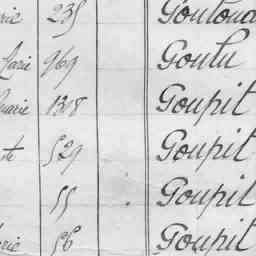 rie 235 Goulond
Marie 969 Goulu
marie 1308 Goupil
te 529 Goupil
55 Goupil
rie 56 Goupil